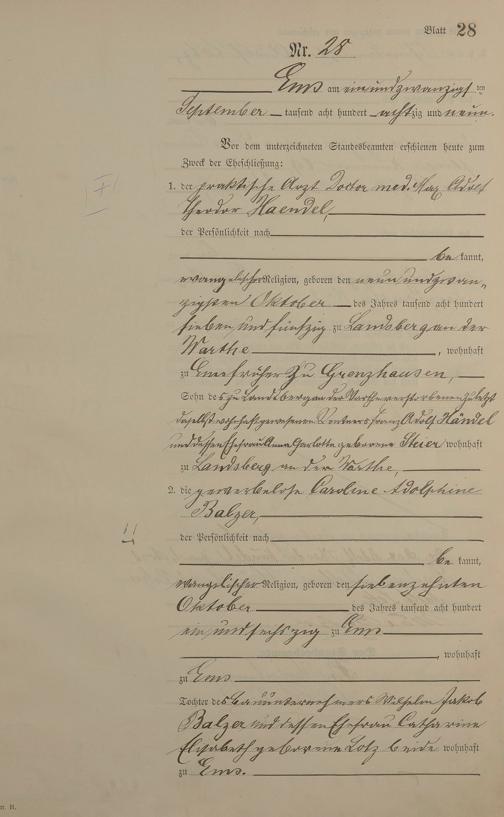 Blatt 28
Nr. 28
Ems am einundzwanzigsten
September tausend acht hundert achtzig und neun.
Vor dem unterzeichneten Standesbeamten erschienen heute zum
Zweck der Eheschließung:
1. der praktische Arzt Doctor med. Max Adolf
Theodor Haendel,
der Persönlichkeit nach
be kannt,
evangelischer Religion, geboren den neunundzwan-
zigsten Oktober des Jahres tausend acht hundert
sieben und fünfzig zu Landsberg an der
Warthe, wohnhaft
zu Ems früher zu Grenzhausen,
Sohn des zu Landsberg an der Warthe verstorbenen zuletzt
daselbst wohnhaft gewesenen Rentners Franz Adolf Händel
und dessen Ehefrau Anna Charlotte geborene Steuer wohnhaft
zu Landsberg an der Warthe,
2. die gewerbelose Caroline Adolphine
Balzer,
der Persönlichkeit nach
be kannt,
evangelischer Religion, geboren den siebenzehnten
Oktober des Jahres tausend acht hundert
ein und sechszig zu Ems
, wohnhaft
zu Ems
Tochter des Bauunternehmers Wilhelm Jakob
Balzer und dessen Ehefrau Catharine
Elisabeth geborene Lotz beide wohnhaft
zu Ems.